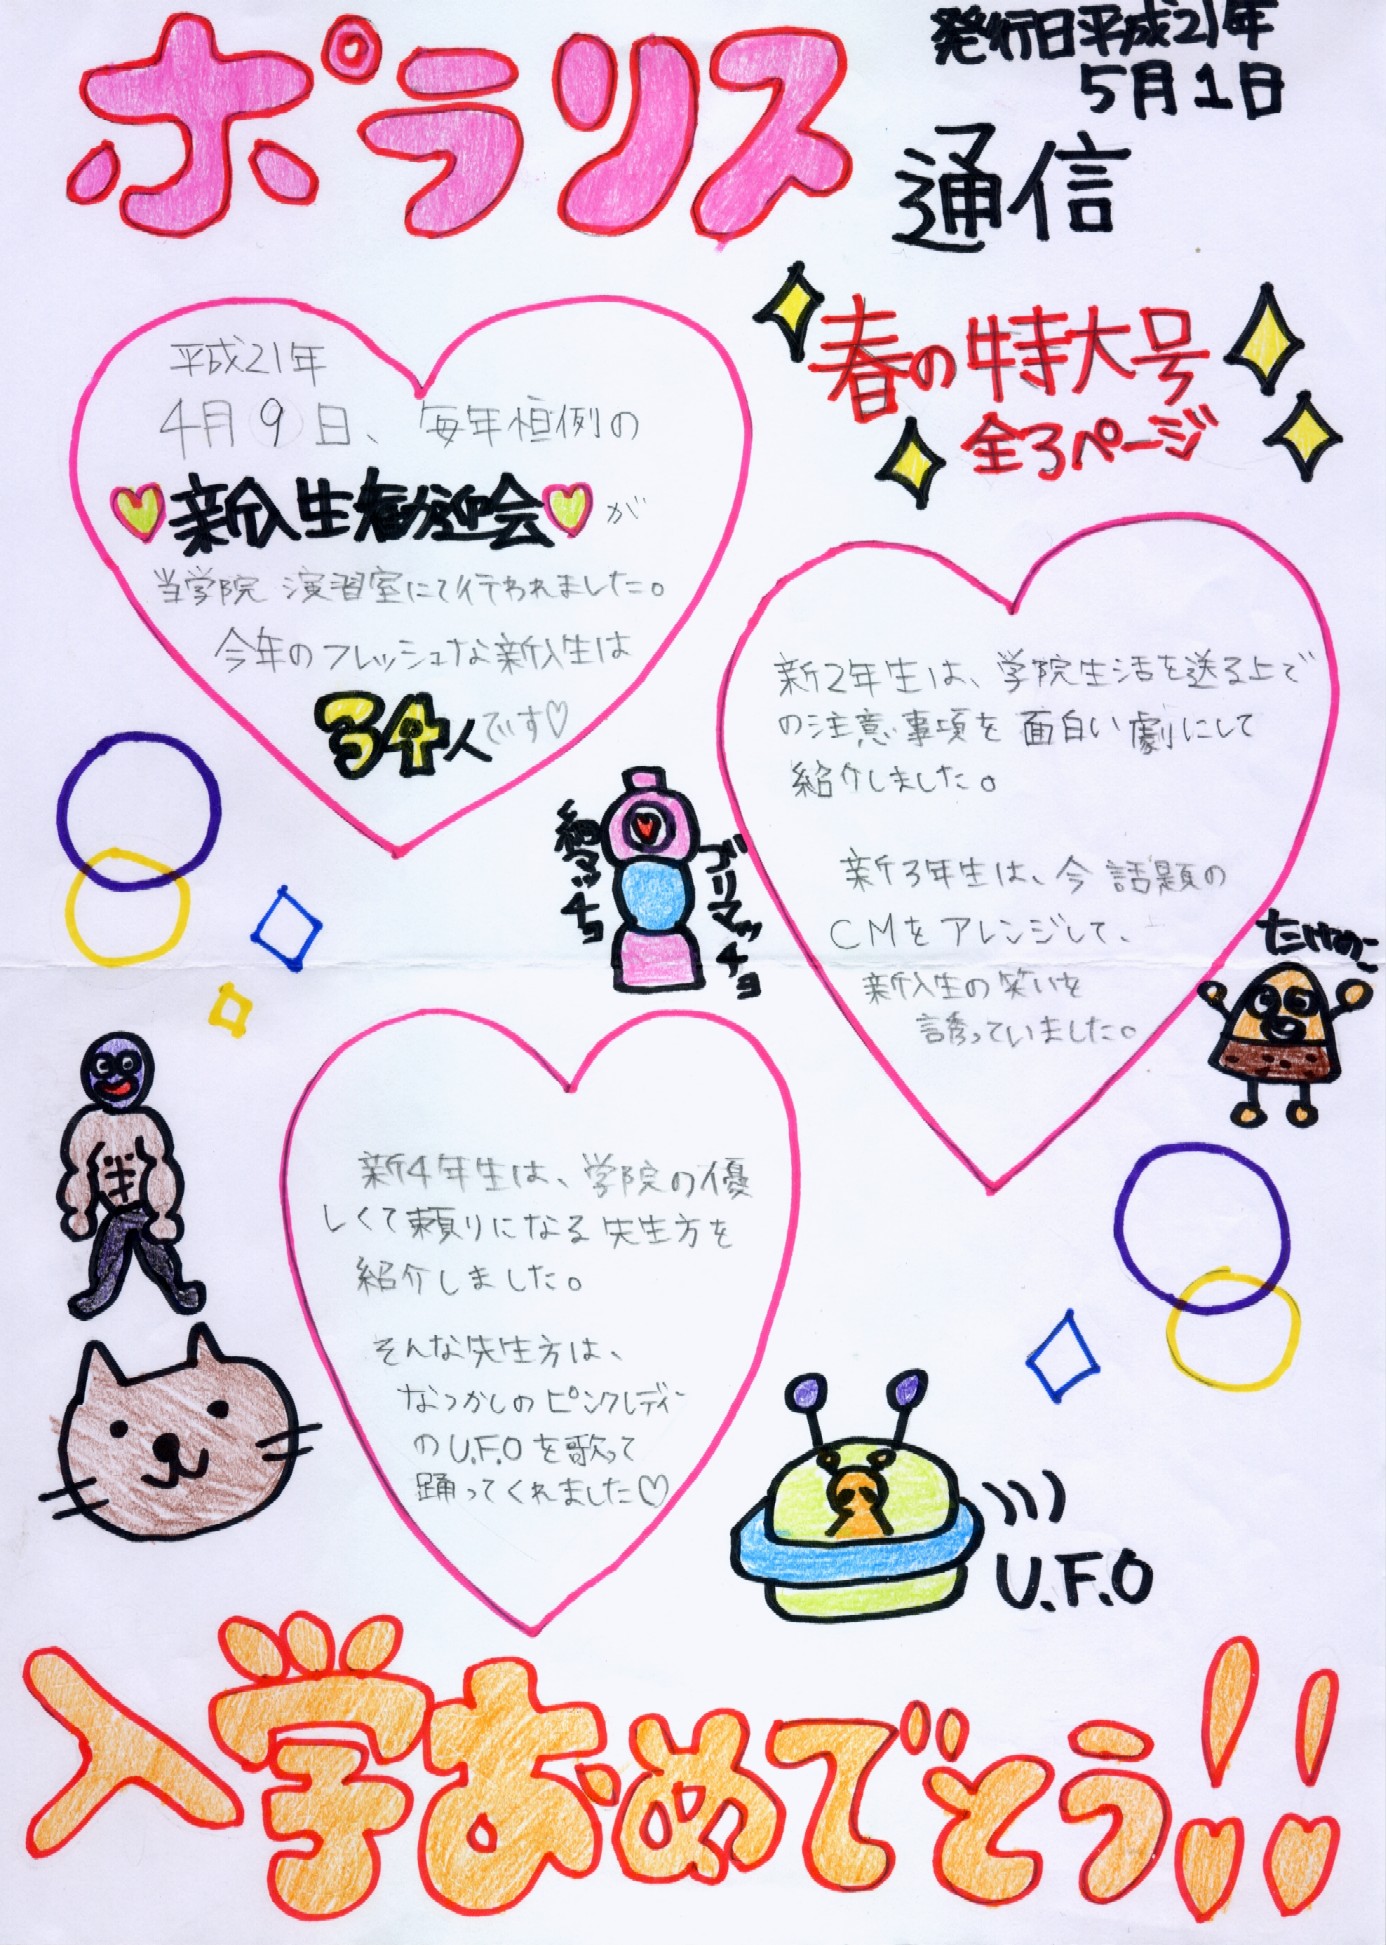 ポラリス
発行日平成21年
5月1日
通信
春の特大号
全3ページ
平成21年
4月9日、毎年恒例の
新入生歓迎会が
当学院 演習室にて行われました。
今年のフレッシュな新入生は
34人です♡
新2年生は、学院生活を送る上で
の注意事項を面白い劇にして
紹介しました。
新3年生は、今話題の
CMをアレンジして、
新入生の笑いを
誘っていました。
細マッチョ
ゴリマッチョ
たけのこ
新4年生は、学院の優
しくて頼りになる先生方を
紹介しました。
そんな先生方は、
なつかしのピンクレディー
のU.F.Oを歌って
踊ってくれました♡
U.F.O
入学おめでとう!!